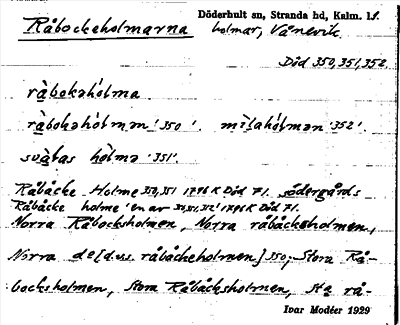 Döderhult sn, Stranda hd, Kalm. l.
Råbockeholmarna holmar, Vånevik
Död 350,351,352
ràbokahólma
ràbokahólman '350'. milahólman '352'.
svàtas hólma '351'.
Råbäcke Holme 350,351 1796 K Död 71. södergårds
Råbäcke holme 'en av 350,351,352' 1796 K Död 71.
Norra Råbocksholmen, Norra råbäcksholmen,
Norra de[d.v.s. råbäckeholmen] 350; Stora Rå-
bocksholmen, Stora Råbäcksholmen, Sta rå-
Ivar Modéer 1929